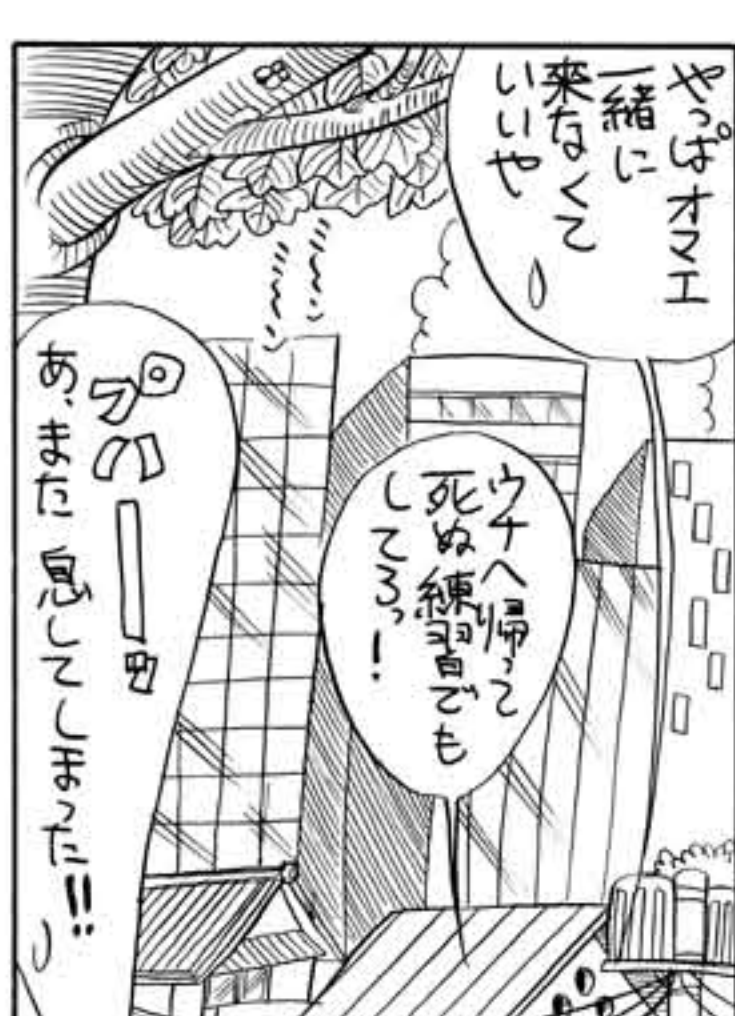 やっぱオマエ
一緒に
来なくて
いいや
ウチへ帰って
死ぬ練習でも
してろっ!
プハーッ
あ、また息してしまった!!